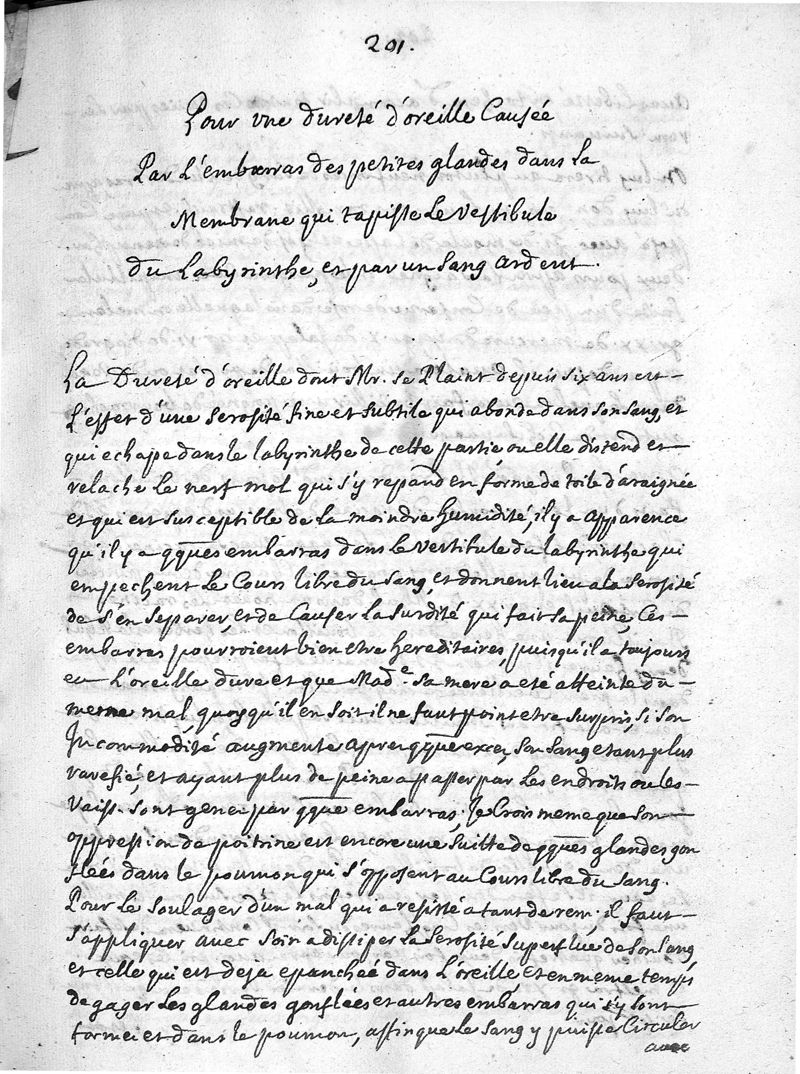 201.
Pour une dureté d'oreille Causée
Par L'embarras des petites glandes dans la
Membrane qui tapisse Le Vestibule
du Labyrinthe, et par un Sang ardent.
La Dureté d'oreille dont Mr. se Plaint depuis six ans est
L'effet d'une serosité fine et subtile qui abonde dans son sang, et
qui echape dans le labyrinthe de cette partie, ou elle distend et
relache Le nerf mol qui s'y repand en forme de toile d'araignée
et qui est susceptible de la moindre humidité, il y a apparence
qu'il y a qques embarras dans le Vestibule du labyrinthe qui
empechent Le Cours libre du Sang, et donnent lieu a la Serosité
de s'en separer, et de Causer la surdité qui fait sa peine, Ces
embarras pourroient bien etre hereditaires, puisqu'il a toujours
eu L'oreille dure et que Made. sa mere a eté atteinte du
meme mal, quoy qu'il en soit il ne faut point etre surpris, si son
Incommodité augmente apres qque exces, son sang etant plus
rarefié, et ayant plus de peine a passer par Les endroits ou les
Vaiss. sont genes par qque embarras, Je Crois meme que son
oppression de poitrine est encore une Suitte de qques glandes gon
flées dans le poumon qui s'opposent au Cours libre du Sang.
Pour Le soulager d'un mal qui a resisté a tant de rem. il faut
s'appliquer avec soin a dissiper la Serosité Superflue de son Sang
et celle qui est deja epanchée dans L'oreille et en meme temps
degager Les glandes gonflées et autres embarras qui s'y sont
formei et dans le poumon, affin que Le Sang y puisse Circuler
avec